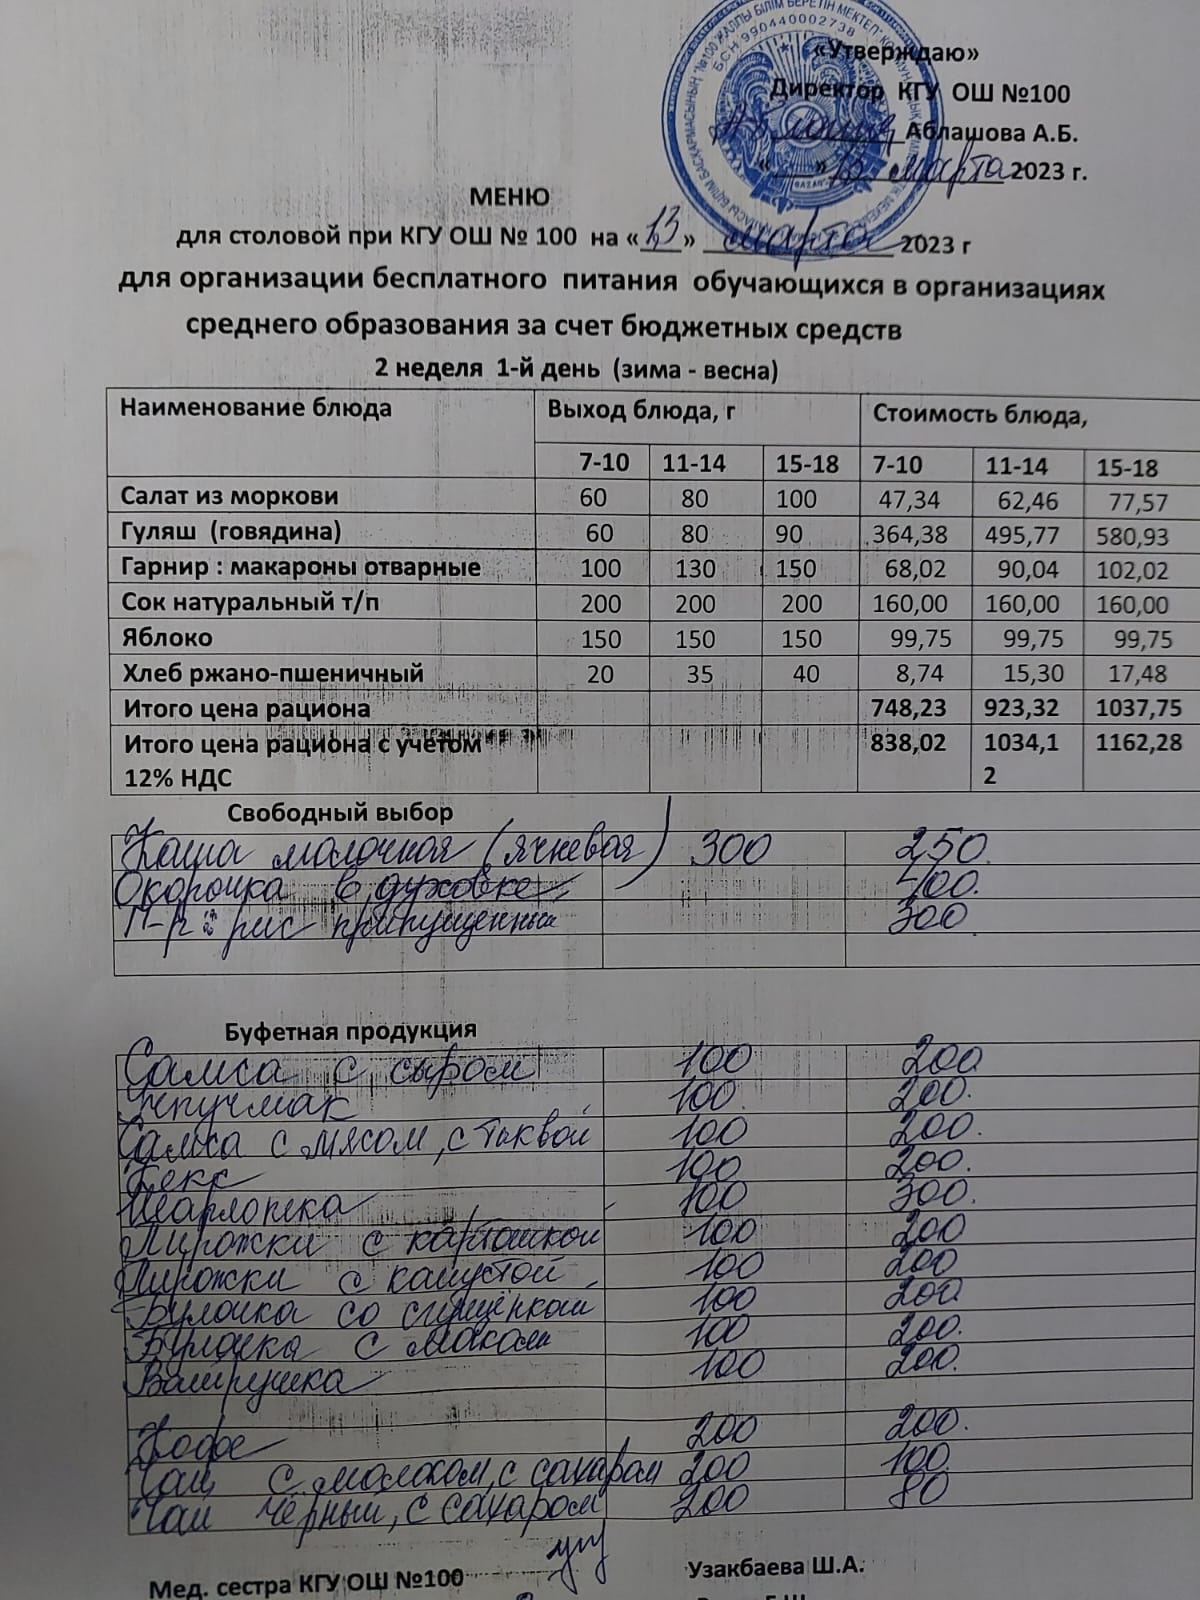 «Утверждаю»
Директор КГУ ОШ №100
Аблашова А.Б.
«___» 13 марта 2023 г.
МЕНЮ
для столовой при КГУ ОШ № 100 на «13» марта 2023 г
для организации бесплатного питания обучающихся в организациях
среднего образования за счет бюджетных средств
2 неделя 1-й день (зима - весна)
Наименование блюда Выход блюда, г Стоимость блюда,
7-10 11-14 15-18 7-10 11-14 15-18
Салат из моркови 60 80 100 47,34 62,46 77,57
Гуляш (говядина) 60 80 90 364,38 495,77 580,93
Гарнир : макароны отварные 100 130 150 68,02 90,04 102,02
Сок натуральный т/п 200 200 200 160,00 160,00 160,00
Яблоко 150 150 150 99,75 99,75 99,75
Хлеб ржано-пшеничный 20 35 40 8,74 15,30 17,48
Итого цена рациона 748,23 923,32 1037,75
Итого цена рациона с учётом 838,02 1034,1 1162,28
12% НДС 2
Свободный выбор
Каша молочная (ячневая) 300 250.
Окорочка в духовке 400.
Г-р: рис припущенный 300
Буфетная продукция
Самса с сыром 100 200
Эчпучмак 100. 200.
Самса с мясом, с тыквой 100 200.
Кекс 100 200.
Шарлотка 100 300.
Пирожки с картошкой 100 200
Пирожки с капустой 100 200
Булочка со сгущёнкой 100 200
Булочка с маком 100 200.
Ватрушка 100 200.
Кофе 200 200.
Чай с молоком, с сахаром 200 100
Чай чёрный, с сахаром 200 80
Мед. сестра КГУ ОШ №100 Узакбаева Ш.А.